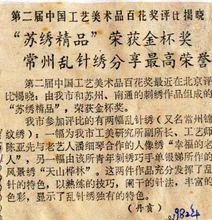 第二届中国工艺美术品百花奖评比揭晓
“苏绣精品”荣获金杯奖
常州乱针绣分享最高荣誉
第二届中国工艺美术品百花奖最近在北京评
比揭晓：由我市和苏州、南通的刺绣作品组成的
“苏绣精品”，荣获金杯奖。
我市参加评比的有两幅乱针绣（又名常州锦
纹绣）：一幅为我市工美研究所副所长、工艺美术
师陈亚先与老艺人潘细琴合作的人像绣“幸福的
人”，另一幅由该所青年刺绣巧手单银娣所作的
风景绣“天山桦林”。这两件作品充分发挥了乱
针绣的特色，以熟练的技巧，阑干的针法，丰富的
色彩，显示了乱针绣独有的特色。
（丹贡）